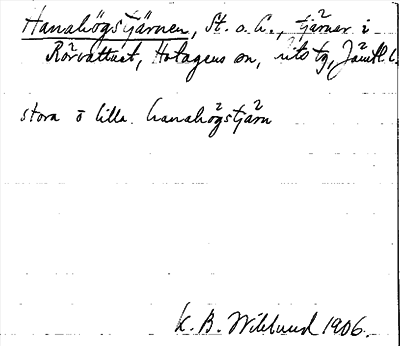 Hanahögstjärnen, St. o. L., tjärnar i
Rörvattnet, Hotagens sn, uto tg, Jämtl. l.
stora o lilla hanahögstjärn
K. B. Wiklund 1906.